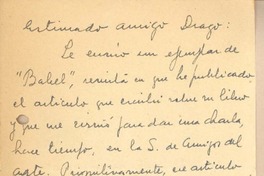 Estimado amigo Drago:
Le envío un ejemplar de
"Babel", revista en que he publicado
el artículo que escribí sobre su libro
y que me sirvió para dar una charla,
hace tiempo, en la S. de Amigos del
arte. Posiblemente, ese artículo